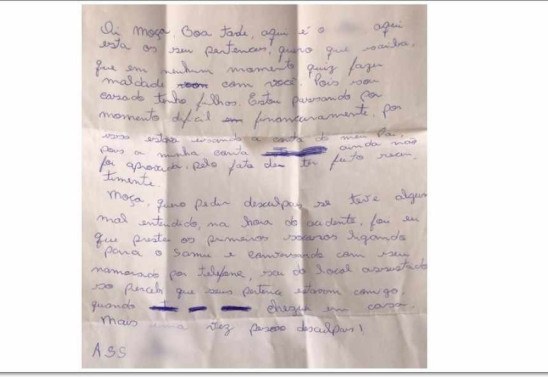 Oi moça. Boa tarde, aqui é o aqui
esta os seu pertences, quero que saiba,
que em nenhum momento quiz fazer
maldade com você. Pois sou
casado tenho filhos. Estou passando por
momento difial em financeiramente, por
isso estava usando a conta do meu
pois a minha conta ainda não
foi aprovada, pelo fato de ter feito recen
timente.
Moça, quero pedir desculpas, se teve algum
mal entendido, na hora do acidente, fou eu
que prestei os primeiros socorros ligando
para o Samu e conversando com seu
namorado por telefone, sai do local assustado
so percebi que seus estavam comigo
quando cheguei em casa.
Mais uma vez peço desculpas!
ASS